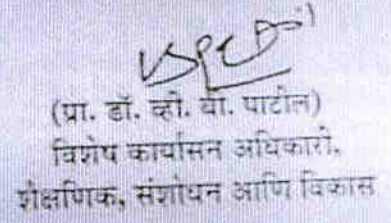 (प्रा. डॉ. व्ही. बी. पाटील)
विशेष कार्यासन अधिकारी,
शैक्षणिक, संशोधन आणि विकास